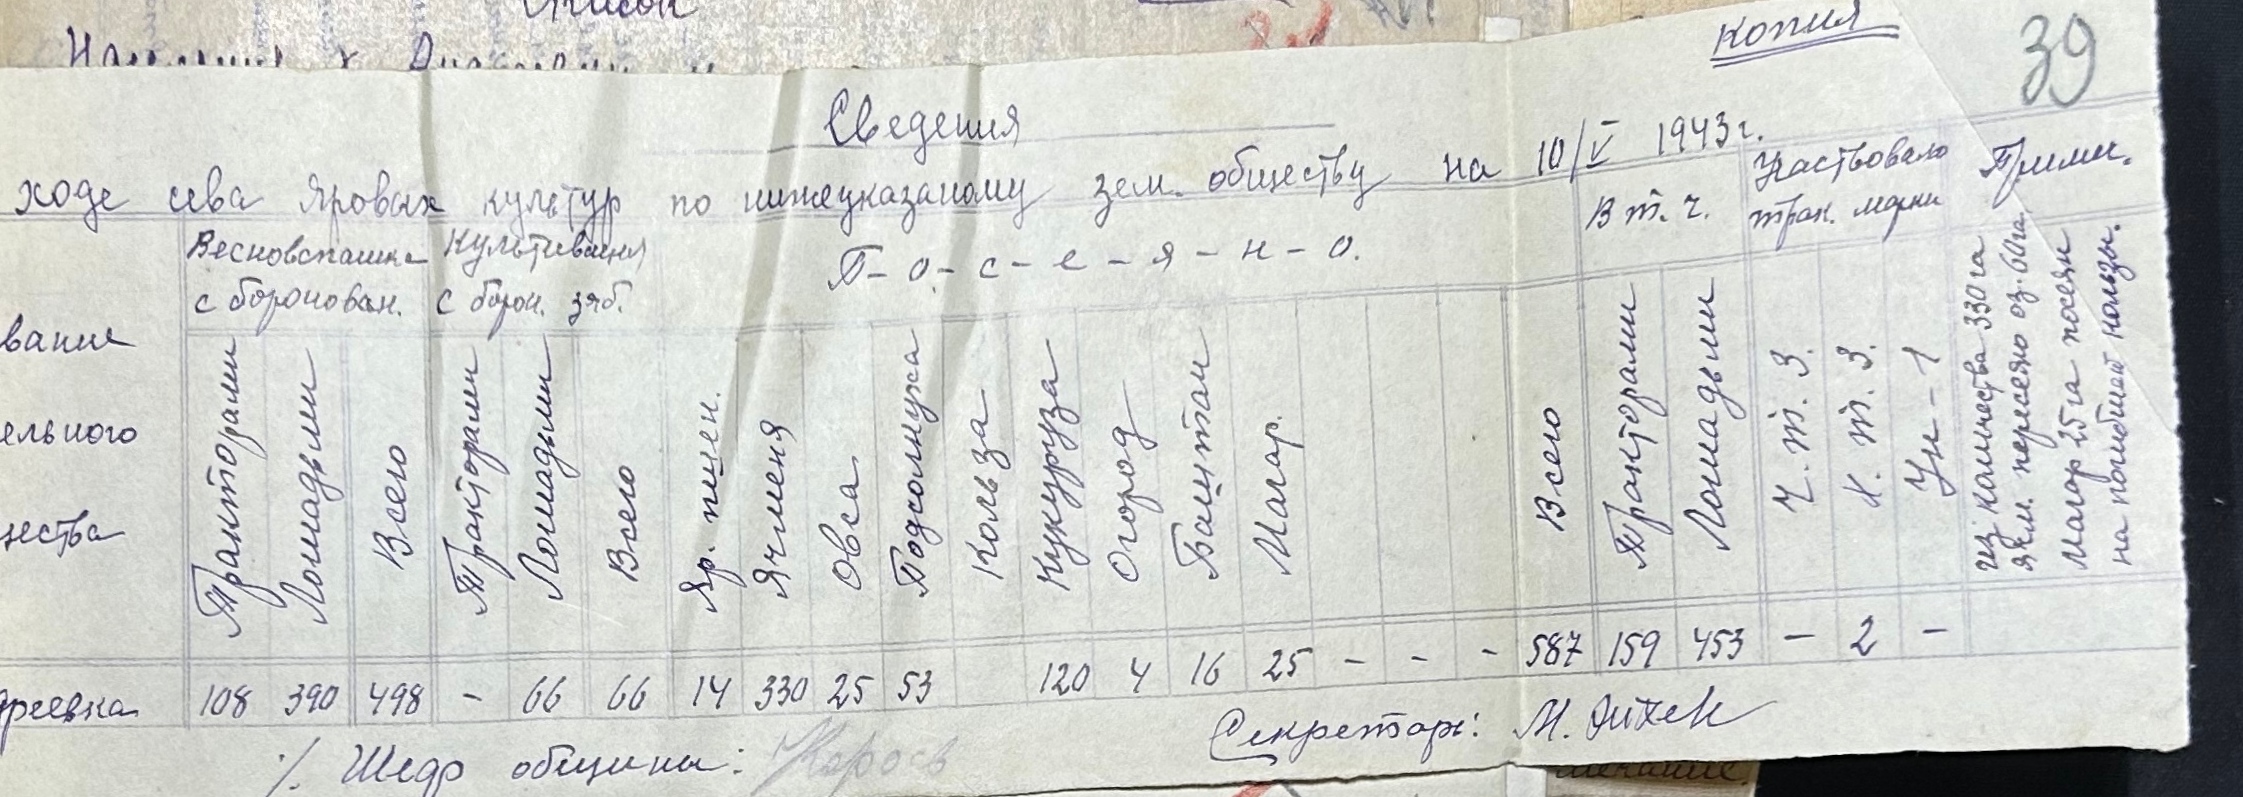 Список
Копия
39
Сведения
ходе сева яровых культур по нижеуказаному зем. обществу на 10/V 1943 г.
Весновспашка с боронован.
Культивация с борон. зяб.
П-о-с-е-я-н-о.
В т. ч.
Участвовало трак. марки
Прим.
вание
ельного
чества
Тракторами
Лошадьми
Всего
Тракторами
Лошадьми
Всего
Яр. пшен.
Ячменя
Овса
Подсолнуха
Кользa
Кукуруза
Огород
Баштан
Могар.
Всего
Тракторами
Лошадьми
Ч. т. З.
Х. т. З.
Ун-1
из количества 330 га
ячм. пересеяно оз. 60га.
Могар 25 га посеян
на погибшей
108 390 498 - 66 66 14 330 25 53 120 4 16 25 - - - 587 159 453 - 2 -
реевка
Шеф общины:
Секретарь: М.